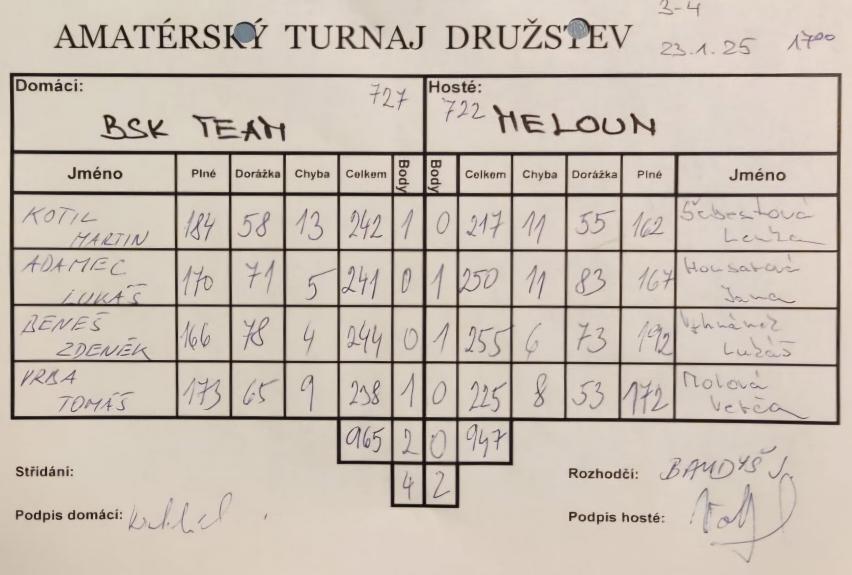 3-4
AMATÉRSKÝ TURNAJ DRUŽSTEV
23.1.25 17⁰⁰
Domácí: 727 Hosté:
BSK TEAM 722 MELOUN
Jméno Plné Dorážka Chyba Celkem Body Body Celkem Chyba Dorážka Plné Jméno
KOTIL MARTIN 184 58 13 242 1 0 217 11 55 162 Šebestová Lenka
ADAMEC LUKÁŠ 170 71 5 241 0 1 250 11 83 167 Jana
BENEŠ ZDENĚK 166 78 4 244 0 1 255 6 73 192 Lukáš
VRBA TOMÁŠ 173 65 9 238 1 0 225 8 53 172 Molová Verča
965 2 0 947
Střídání: 4 2 Rozhodčí: BANDYŠ J.
Podpis domácí: Podpis hosté: